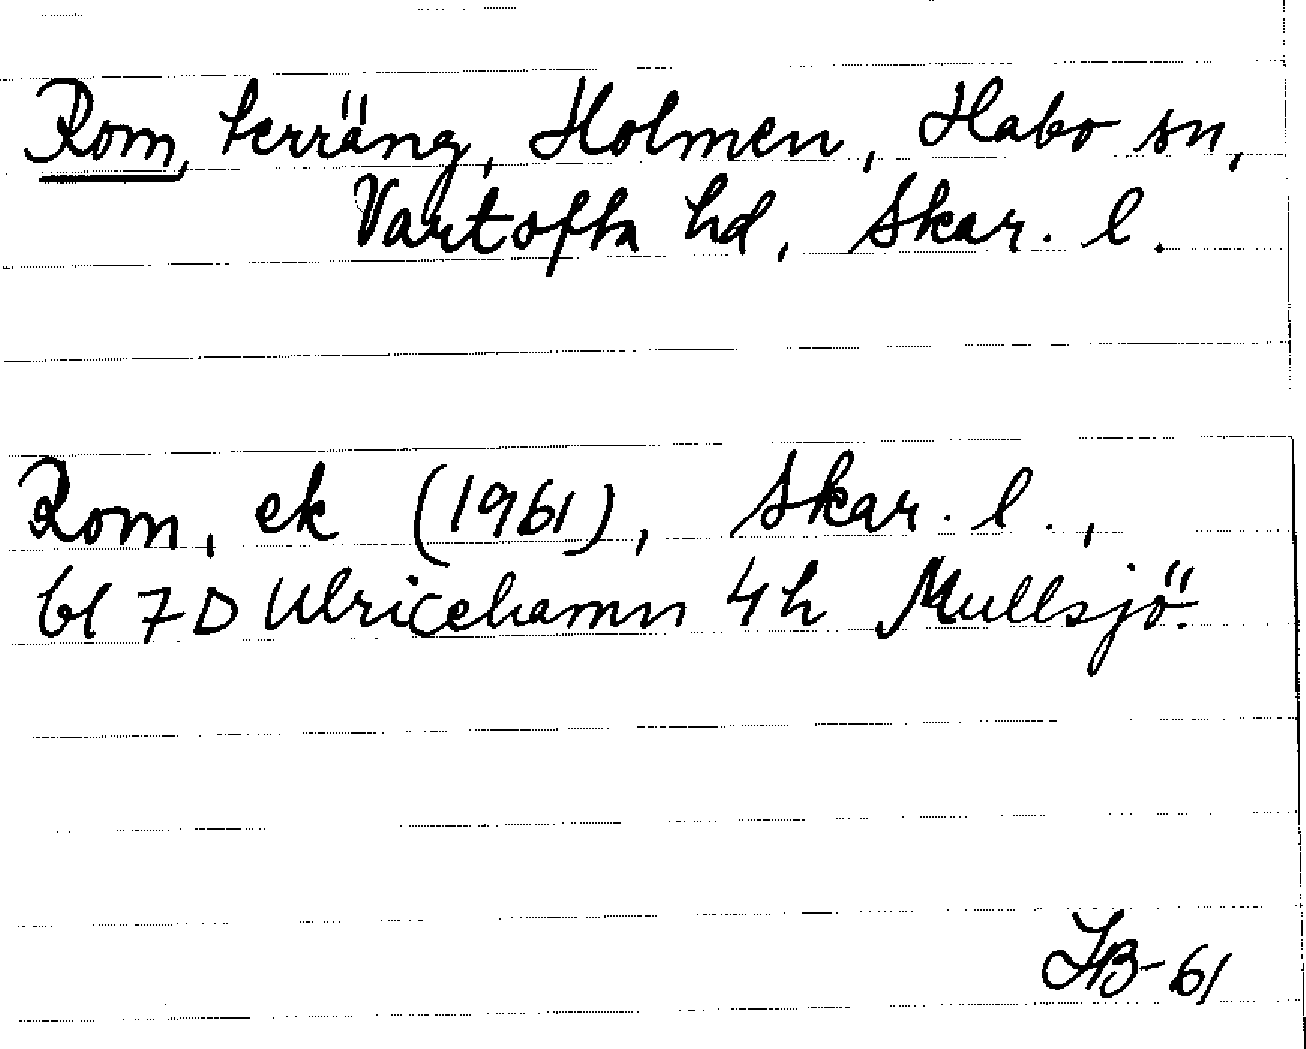 Rom, terräng, Holmen, Habo sn,
Vartofta hd, Skar. l.
Rom, ek (1961), Skar. l.,
bl 7D Ulricehamn 4h Mullsjö.
IB-61